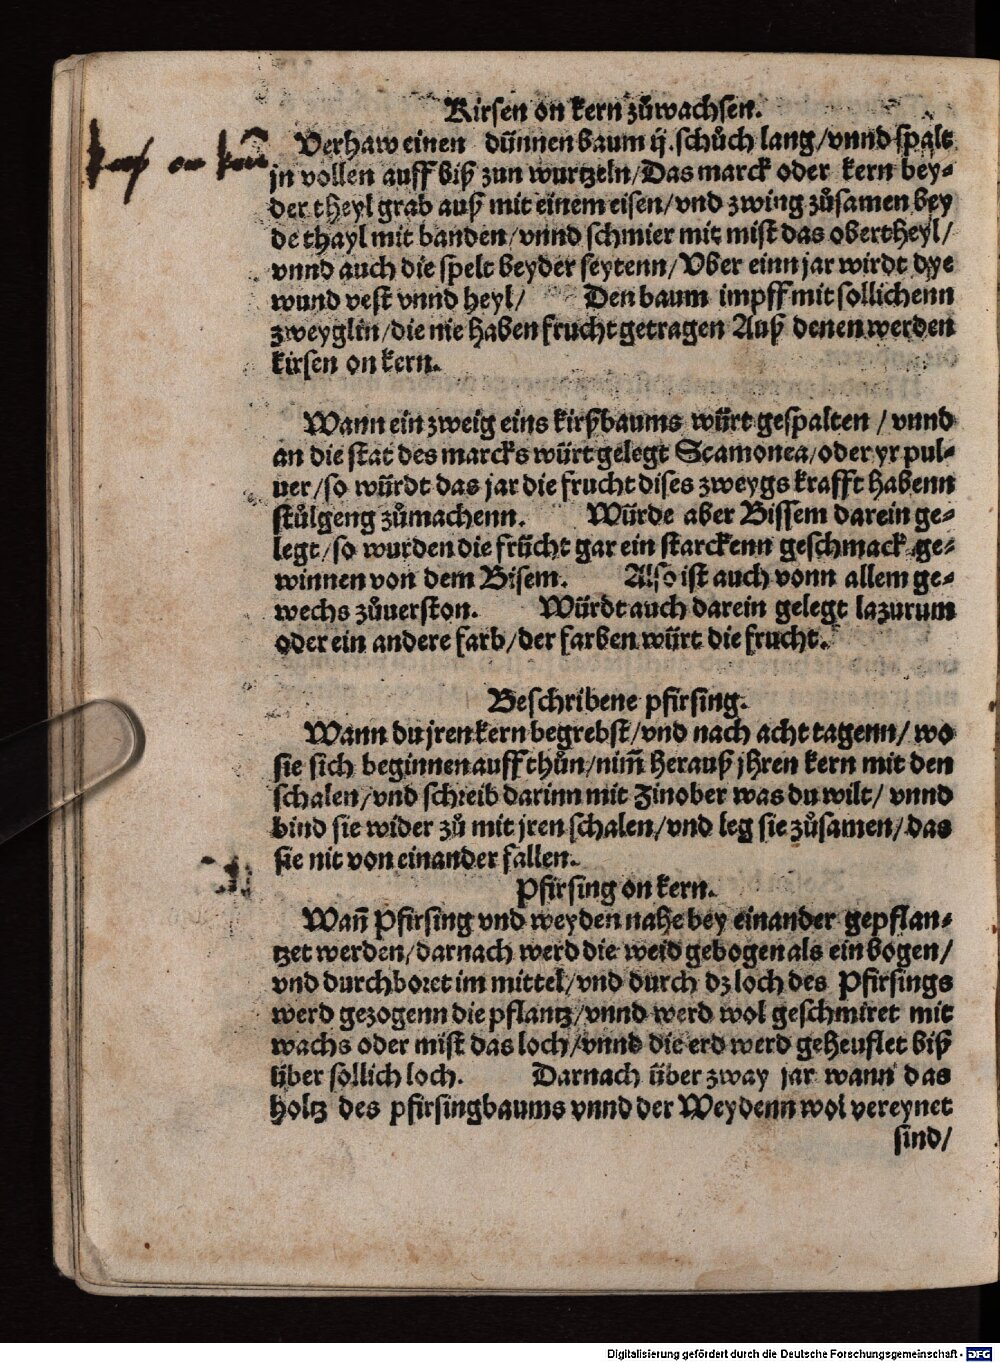 Kirsen on kern zůwachsen.
Verhaw einen dünnen baum ij. schůch lang/vnnd spalt
jn vollen auff biß zun wurtzeln/Das marck oder kern bey⸗
der theyl grab auß mit einem eisen/vnd zwing zůsamen bey
de thayl mit banden/vnnd schmier mit mist das obertheyl/
vnnd auch die spelt beyder seytenn/Vber einn jar wirdt dye
wund vest vnnd heyl/ Den baum impff mit sollichenn
zweyglin/die nie haben frucht getragen Auß denen werden
kirsen on kern.
on kern
Wann ein zweig eins kirßbaums würt gespalten / vnnd
an die stat des marcks würt gelegt Scamonea/oder yr pul⸗
uer/so würdt das jar die frucht dises zweygs krafft habenn
stůlgeng zůmachenn. Würde aber Bissem darein ge⸗
legt/so wurden die frücht gar ein starckenn geschmack ge⸗
winnen von dem Bisem. Also ist auch vonn allem ge⸗
wechs zůuerston. Würdt auch darein gelegt lazurum
oder ein andere farb/der farben würt die frucht.
Beschribene pfirsing.
Wann du jren kern begrebst/vnd nach acht tagenn/ wo
sie sich beginnen auff thůn/nim̃ herauß jhren kern mit den
schalen/vnd schreib darinn mit Zinober was du wilt/ vnnd
bind sie wider zů mit jren schalen/vnd leg sie zůsamen/das
sie nit von einander fallen.
Pfirsing on kern.
Wañ Pfirsing vnd weyden nahe bey einander gepflan⸗
tzet werden/darnach werd die weid gebogen als ein bogen/
vnd durchboret im mittel/vnd durch dz loch des Pfirsings
werd gezogenn die pflantz/vnnd werd wol geschmiret mit
wachs oder mist das loch/vnnd die erd werd geheuflet biß
über sollich loch. Darnach über zway jar wann das
holtz des pfirsingbaums vnnd der Weydenn wol vereynet
sind/
Digitalisierung gefördert durch die Deutsche Forschungsgemeinschaft - DFG